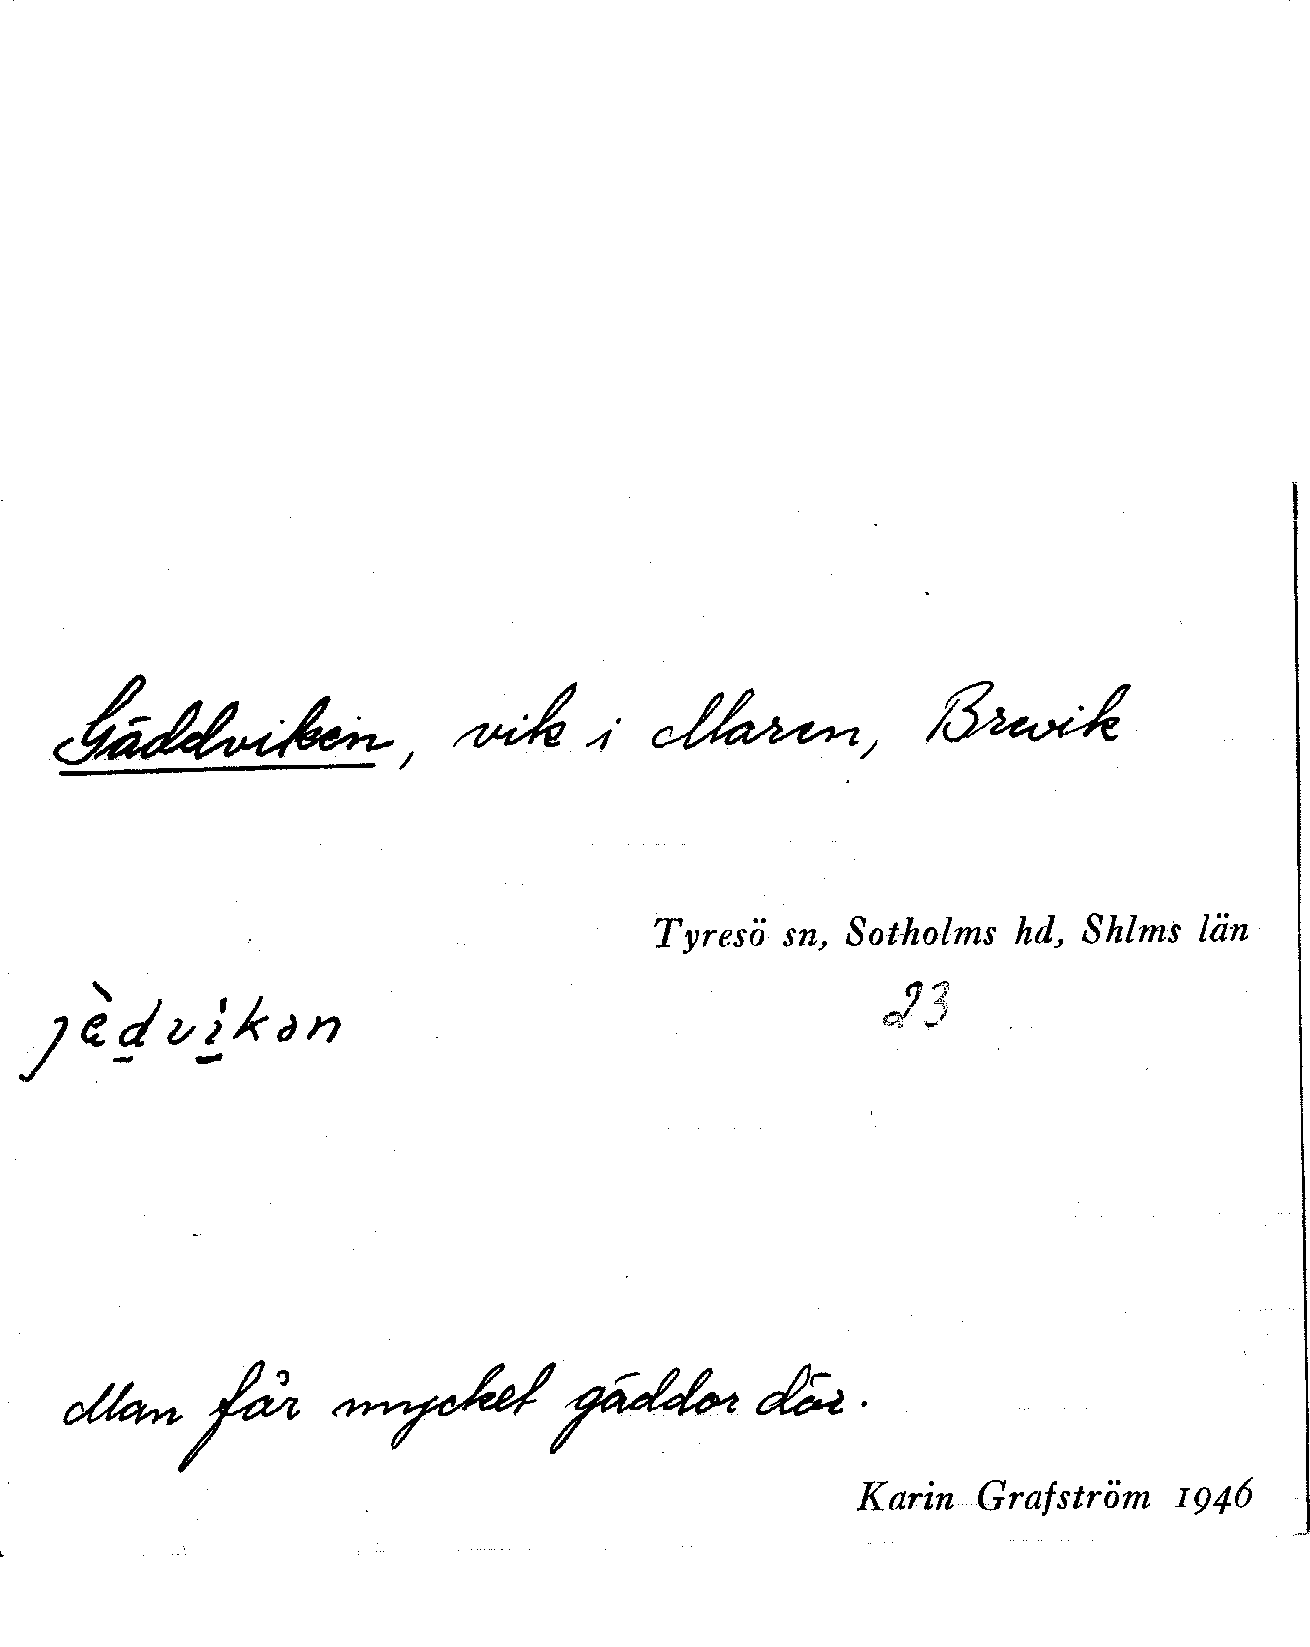 Gäddviken, vik i Maren, Brevik
Tyresö sn, Sotholms hd, Shlms län
jèdvikən
23
Man får mycket gäddor där.
Karin Grafström 1946